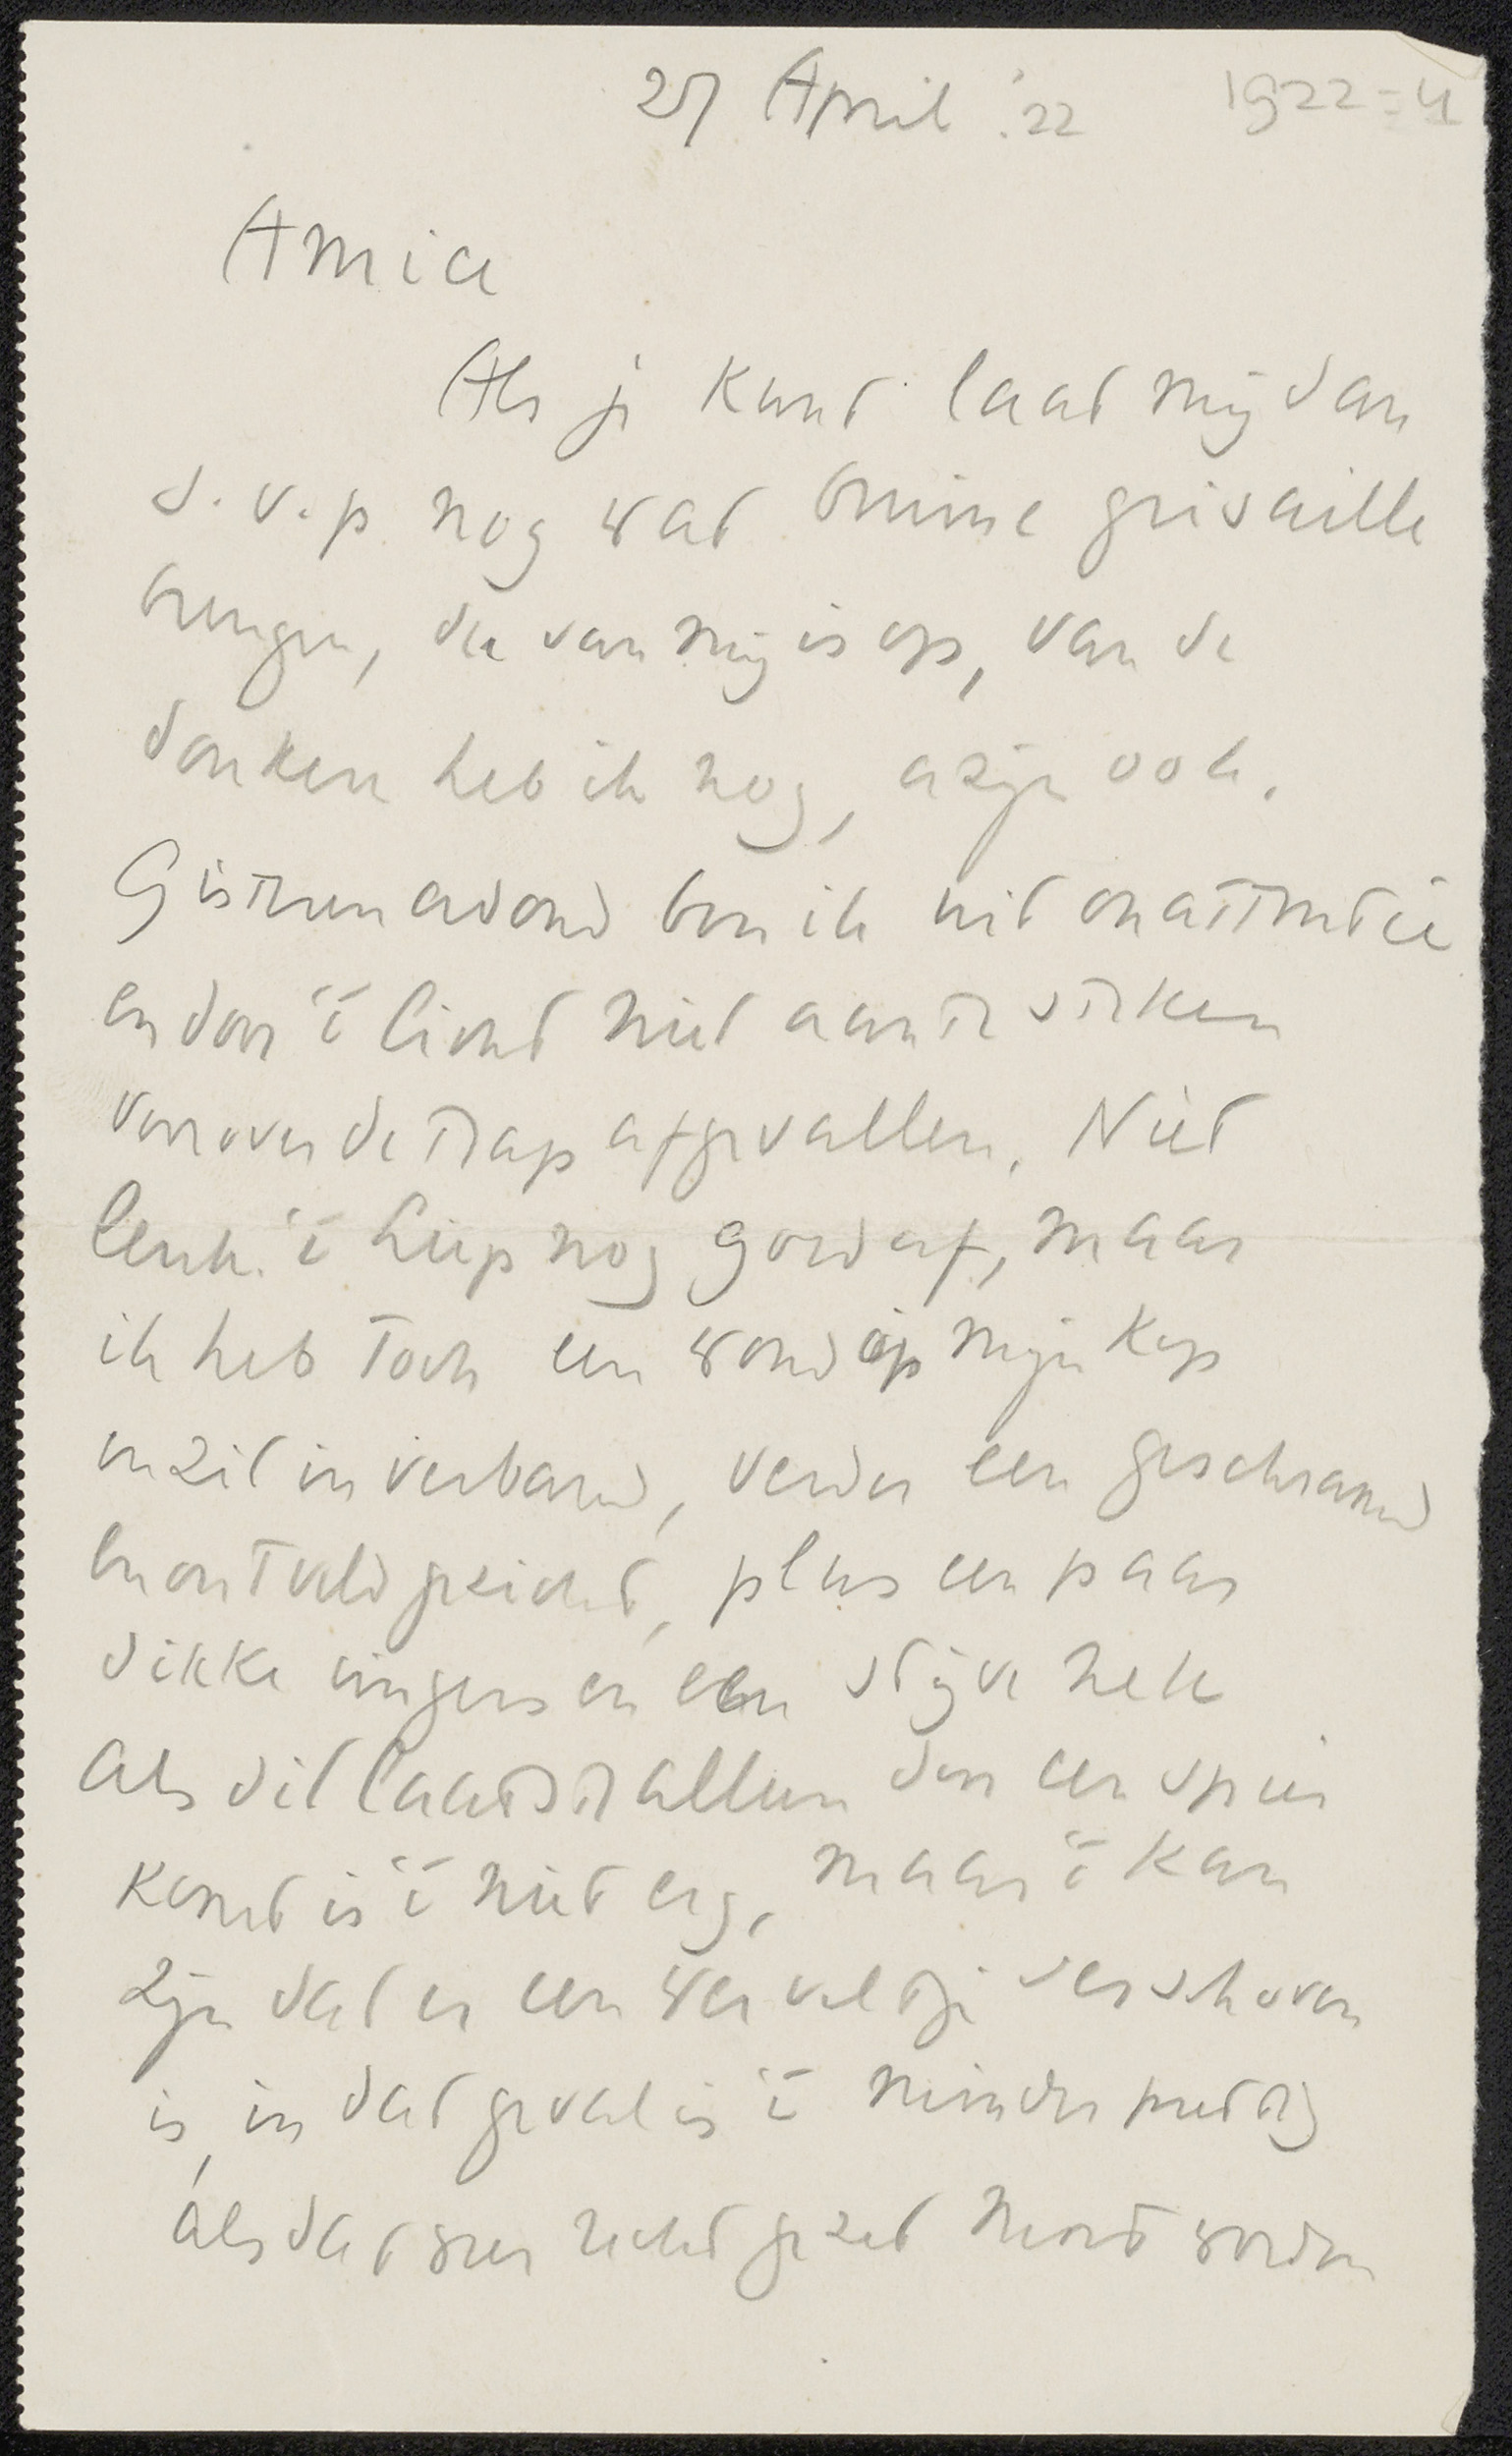 27 April '22 1922=4
Amice
Als je kunt laat mij dan
s.v.p. nog wat bruine grisaille
brengen, die van mij is op, van de
donkere heb ik nog, azijn ook.
Gisteren avond ben ik uit onattentie
en door 't licht niet aan te steken
voorover de trap afgevallen. Niet
leuk. 't liep nog goed af, maar
ik heb toch een wond op mijn kop
en zit in verband, verder een geschramd
en ontveld gezicht, plus een paar
dikke vingers en een stijve nek
Als dit laatste alleen door een spier
komt is 't niet erg, maar 't kan
zijn dat er een werveltje verschoven
is, in dat geval is 't minder prettig
als dat weer recht gezet moet worden